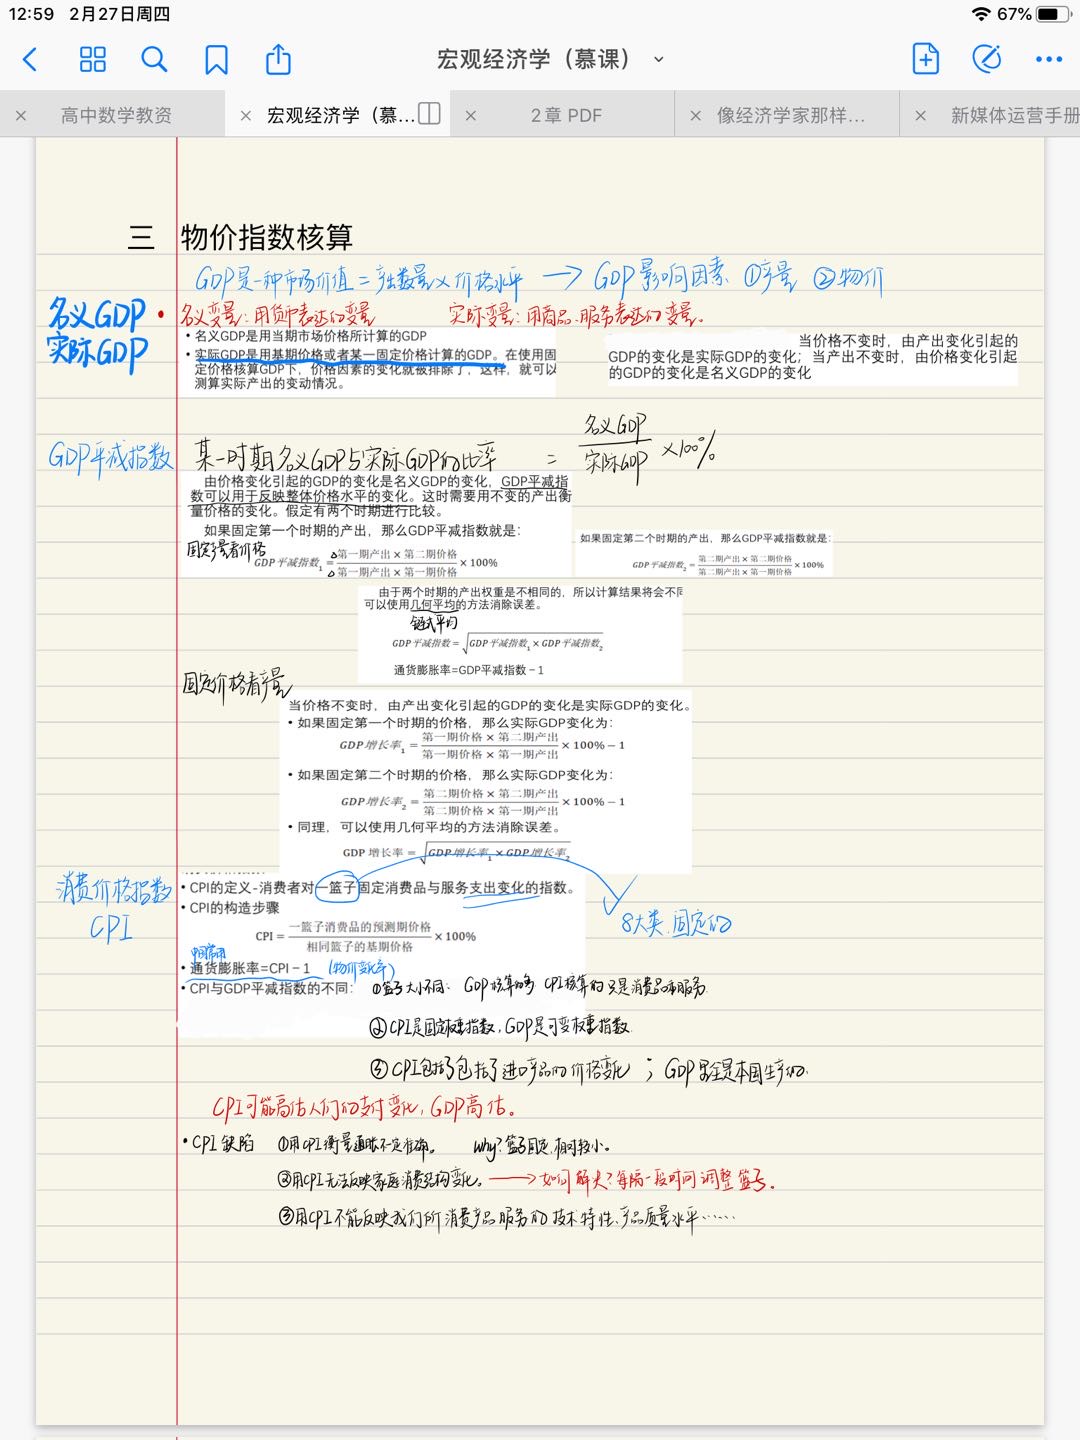 12:59 2月27日周四
67%
宏观经济学（慕课）
高中数学教资
宏观经济学（慕...
2章 PDF
像经济学家那样...
新媒体运营手册
三 物价指数核算
GDP是一种市场价值 = 产出数量×价格水平 → GDP影响因素 ①产量 ②物价
名义GDP • 名义变量：用货币表达的变量 实际变量：用商品.服务表达的变量。
实际GDP
• 名义GDP是用当期市场价格所计算的GDP
• 实际GDP是用基期价格或者某一固定价格计算的GDP。在使用固
定价格核算GDP下，价格因素的变化就被排除了，这样，就可以
测算实际产出的变动情况。
当价格不变时，由产出变化引起的
GDP的变化是实际GDP的变化；当产出不变时，由价格变化引起
的GDP的变化是名义GDP的变化
GDP平减指数 某一时期名义GDP与实际GDP的比率 = 名义GDP / 实际GDP ×100%
由价格变化引起的GDP的变化是名义GDP的变化，GDP平减指
数可以用于反映整体价格水平的变化。这时需要用不变的产出衡
量价格的变化。假定有两个时期进行比较。
如果固定第一个时期的产出，那么GDP平减指数就是：
固定产量看价格
GDP平减指数1 = 第一期产出 × 第二期价格 / 第一期产出 × 第一期价格 × 100%
如果固定第二个时期的产出，那么GDP平减指数就是：
GDP平减指数2 = 第二期产出 × 第二期价格 / 第二期产出 × 第一期价格 × 100%
由于两个时期的产出权重是不相同的，所以计算结果将会不同
可以使用几何平均的方法消除误差。
链式平均
GDP平减指数 = √GDP平减指数1 × GDP平减指数2
通货膨胀率=GDP平减指数 − 1
固定价格看产量
当价格不变时，由产出变化引起的GDP的变化是实际GDP的变化。
• 如果固定第一个时期的价格，那么实际GDP变化为：
GDP增长率1 = 第一期价格 × 第二期产出 / 第一期价格 × 第一期产出 × 100% − 1
• 如果固定第二个时期的价格，那么实际GDP变化为：
GDP增长率2 = 第二期价格 × 第二期产出 / 第二期价格 × 第一期产出 × 100% − 1
• 同理，可以使用几何平均的方法消除误差。
GDP 增长率 = √GDP增长率1 × GDP增长率2
消费价格指数
CPI
• CPI的定义-消费者对一篮子固定消费品与服务支出变化的指数。
8大类.固定的
• CPI的构造步骤
CPI = 一篮子消费品的预测期价格 / 相同篮子的基期价格 × 100%
• 通货膨胀率=CPI − 1 (物价变化率)
• CPI与GDP平减指数的不同： ①篮子大小不同： GDP核算的多 CPI核算的只是消费品和服务
②CPI是固定权重指数，GDP是可变权重指数
③CPI包括了包括了进口产品的价格变化 ；GDP完全是本国生产的.
CPI可能高估人们的支付变化，GDP高估。
• CPI 缺陷 ①用CPI衡量通胀不一定准确。 why? 篮子固定，相对较小。
②用CPI无法反映家庭消费结构变化。→ 如何解决？每隔一段时间调整篮子。
③用CPI不能反映我们所消费产品服务的技术特性、产品质量水平……